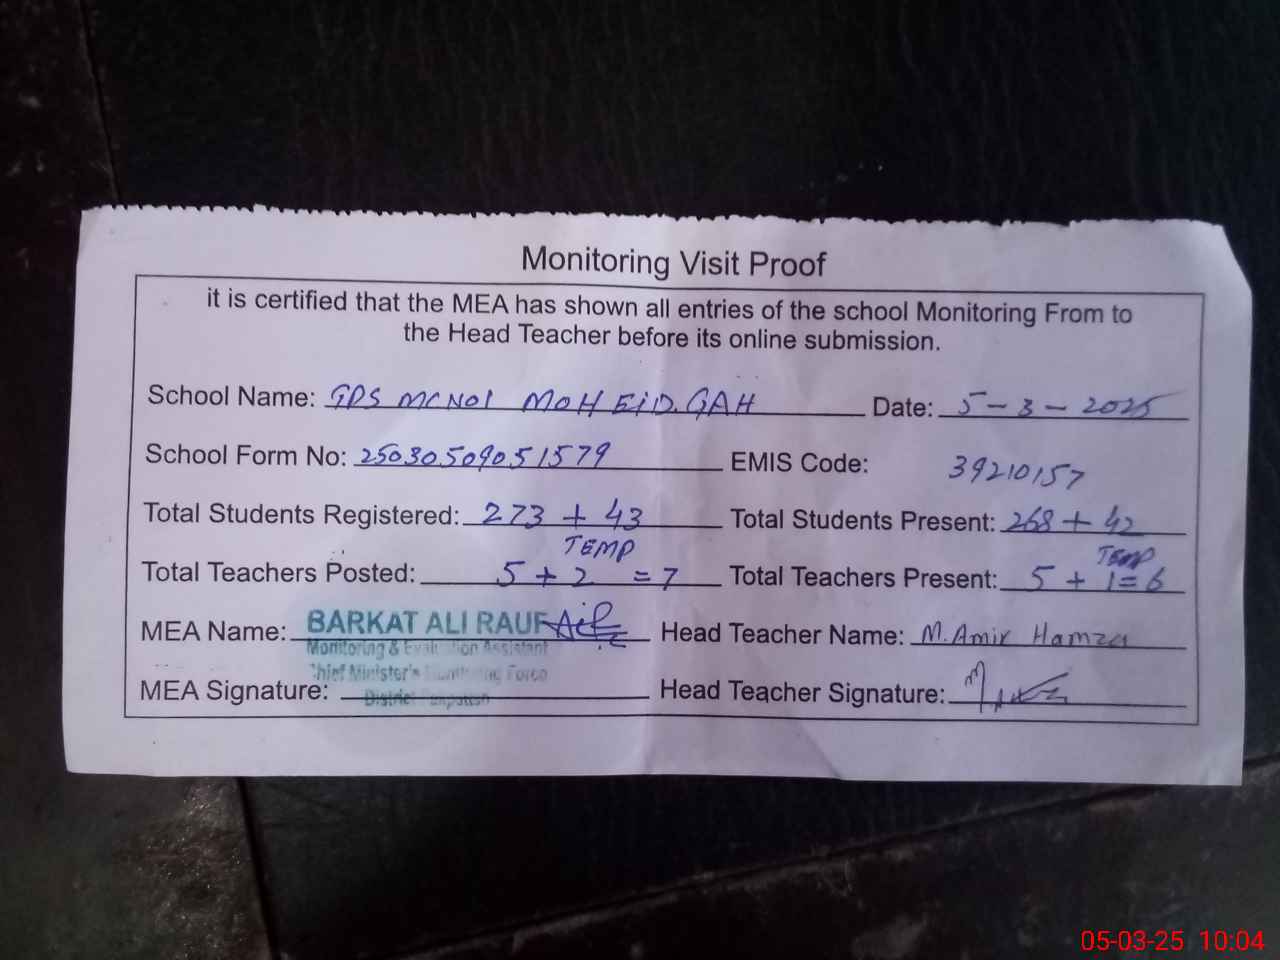 Monitoring Visit Proof
it is certified that the MEA has shown all entries of the school Monitoring From to
the Head Teacher before its online submission.
School Name: GPS MC NO1 MOH EID.GAH Date: 5-3-2025
School Form No: 25030509051579 EMIS Code: 39210157
Total Students Registered: 273 + 43 Total Students Present: 268 + 42
TEMP TEMP
Total Teachers Posted: 5 + 2 = 7 Total Teachers Present: 5 + 1 = 6
MEA Name: BARKAT ALI RAUF Head Teacher Name: M. Amir Hamza
Monitoring & Evaluation Assistant
Chief Minister's Monitoring Force
MEA Signature: Head Teacher Signature:
District Pakpattan
05-03-25 10:04